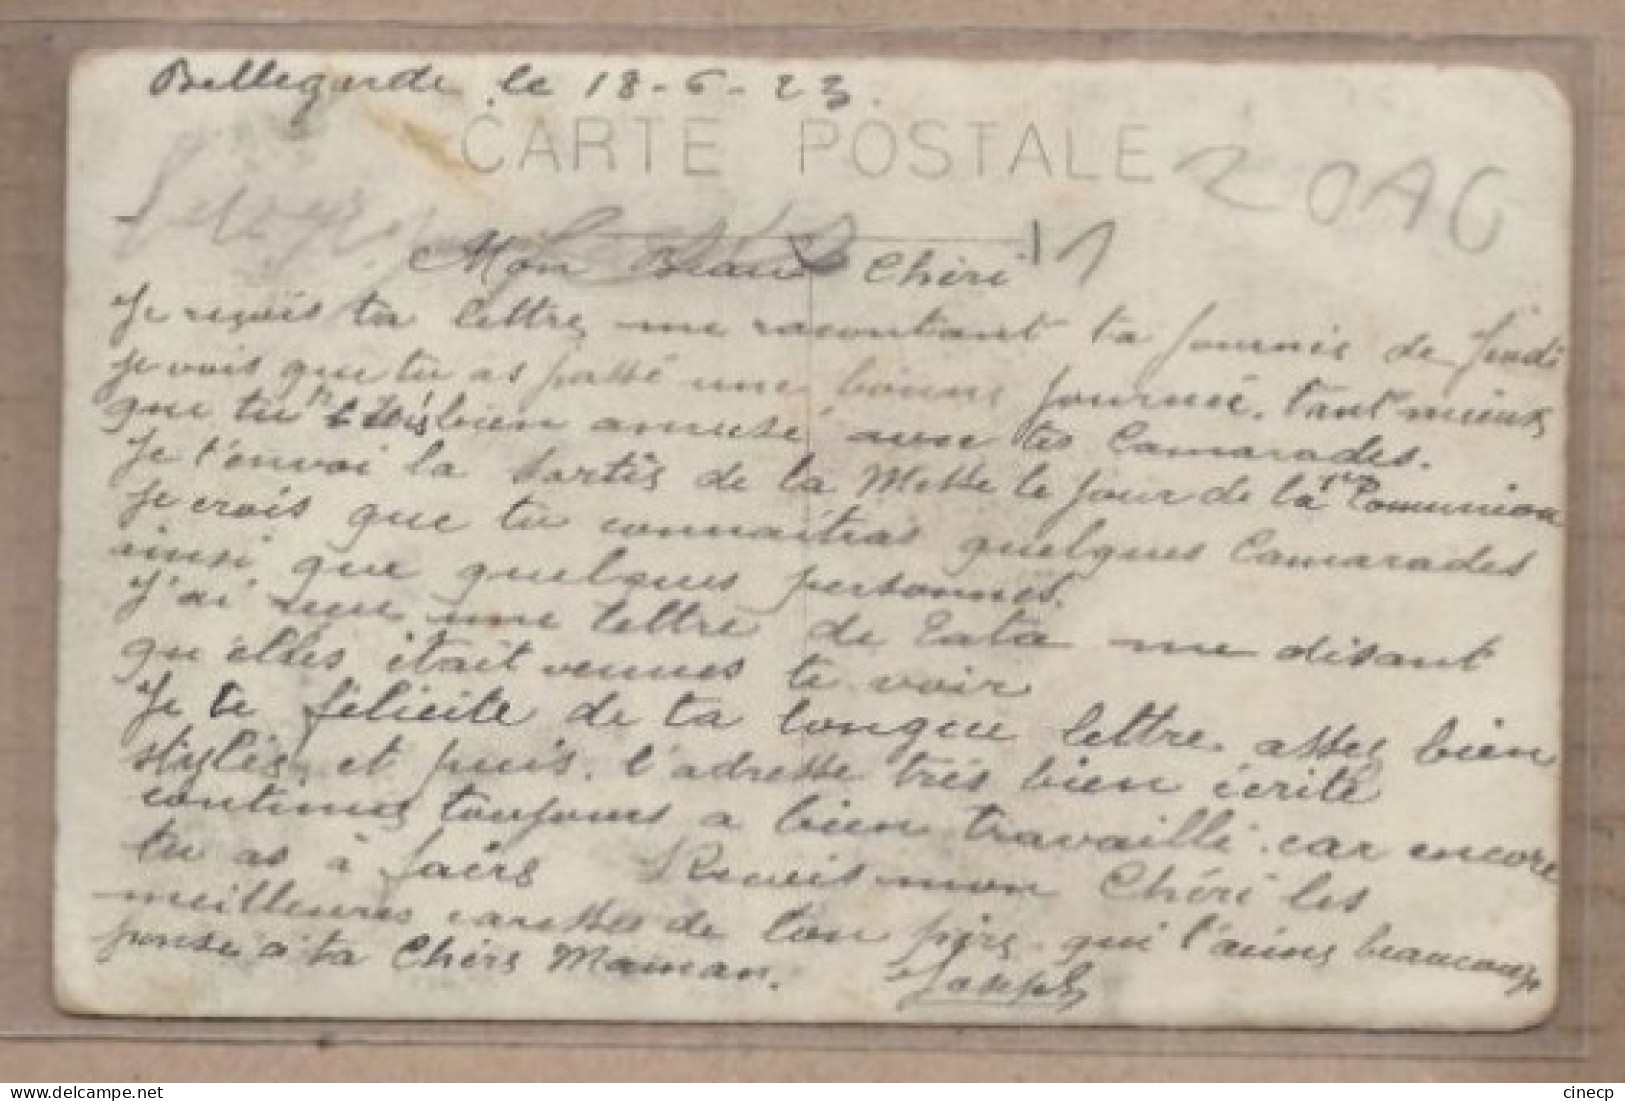 Bellegarde le 18-6-23
CARTE POSTALE
20A6
1
Mon Beau Chéri
Je reçois ta lettre me racontant ta journée de Jeudi
je vois que tu as passé une bonne journée. tant mieux
que tu bien amusé avec tes Camarades.
Je t'envoi la sortie de la Messe le jour de la 1re Comunion
Je crois que tu connaitras quelques Camarades
ainsi que quelques personnes.
J'ai reçu une lettre de Tata me disant
qu'elles était venues te voir
Je te félicite de ta longue lettre assez bien
stylée, et puis, l'adresse très bien écrite
continue toujours a bien travaillé. car encore
tu as à faire Reçois mon Chéri les
meilleures caresses de ton père qui t'aime beaucoup.
pense à ta Chère Maman. Joseph
cinecp